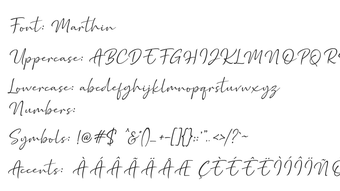 Font: Marthin
Uppercase: ABCDEFGHIJKLMNOPQR
Lowercase: abcdefghijklmnopqrstuvwxyz
Numbers:
Symbols: !@#$ ^&*()_+-[]{};:'",.<>/?`~
Accents: ÀÁÂÃÄÅÆ ÇÈÉÊËÌÍÎÏÑ